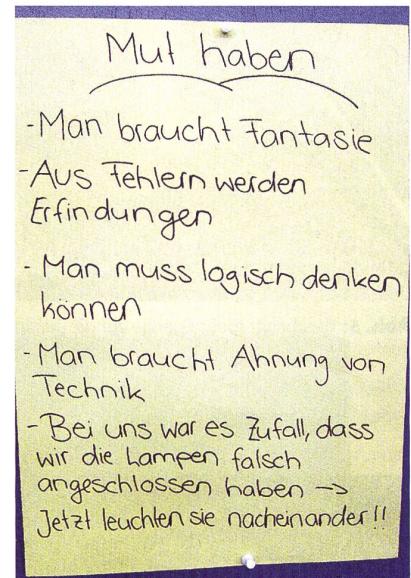 Mut haben
-Man braucht Fantasie
-Aus Fehlern werden
Erfindungen
- Man muss logisch denken
können
-Man braucht Ahnung von
Technik
-Bei uns war es Zufall, dass
wir die Lampen falsch
angeschlossen haben ->
Jetzt leuchten sie nacheinander!!